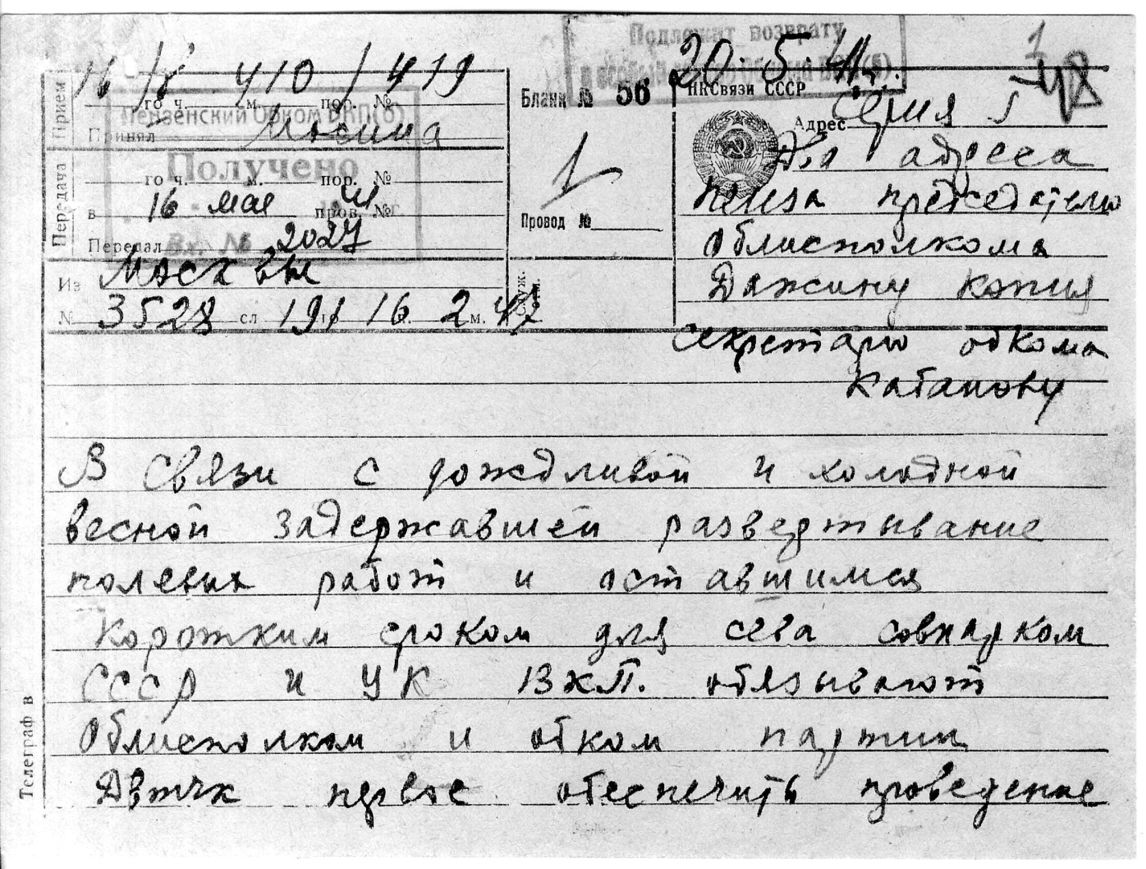 Подлежит возврату
20.5.41г.
48
16/V 4 10 / 419
Прием
го ч. м. пор. №
Пензенский Обком ВКП(б)
Принял Мосина
Получено
Передача
го ч. м. пор. №
в 16 мая 41 пров. №
Вх. № 2027
Передал
Из Москвы
№ 3528 сл. 191 16 го 2 ч. м. 47
Бланк № 56
1
Провод №
служ. отм.
НКСвязи СССР
Адрес Серия Г
Два адреса
Пенза председателю
Облисполкома
Дажину копия
секретарю обкома
Кабанову
В связи с дождливой и холодной
весной задержавшей развертывание
полевых работ и оставшимся
коротким сроком для сева совнарком
СССР и ЦК ВКП. обязывают
Облисполком и обком партии
Двтчк первое обеспечить проведение
Телеграф в